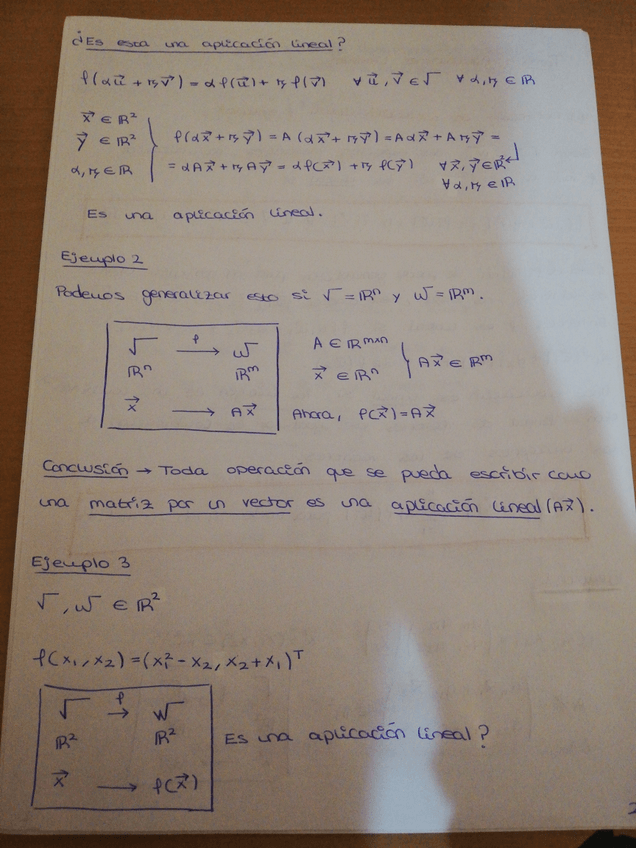 ¿Es esta una aplicación lineal?
f(α𝑢⃗ + β𝑣⃗) = α f(𝑢⃗) + β f(𝑣⃗) ∀ 𝑢⃗, 𝑣⃗ ∈ V ∀ α, β ∈ ℝ
x⃗ ∈ ℝ²
y⃗ ∈ ℝ²
α, β ∈ ℝ
f(αx⃗ + βy⃗) = A (αx⃗ + βy⃗) = Aαx⃗ + Aβy⃗ =
= αAx⃗ + βAy⃗ = αf(x⃗) + β f(y⃗) ∀ x⃗, y⃗ ∈ ℝ²
∀ α, β ∈ ℝ
Es una aplicación lineal.
Ejemplo 2
Podemos generalizar esto si V = ℝⁿ y W = ℝᵐ.
V f→ W
ℝⁿ ℝᵐ
x⃗ → Ax⃗
A ∈ ℝᵐˣⁿ
x⃗ ∈ ℝⁿ
} Ax⃗ ∈ ℝᵐ
Ahora, f(x⃗) = Ax⃗
Conclusión → Toda operación que se pueda escribir como
una matriz por un vector es una aplicación lineal (Ax⃗).
Ejemplo 3
V, W ∈ ℝ²
f(x₁, x₂) = (x₁² - x₂, x₂ + x₁)ᵀ
V f→ W
ℝ² ℝ²
x⃗ → f(x⃗)
Es una aplicación lineal?
2